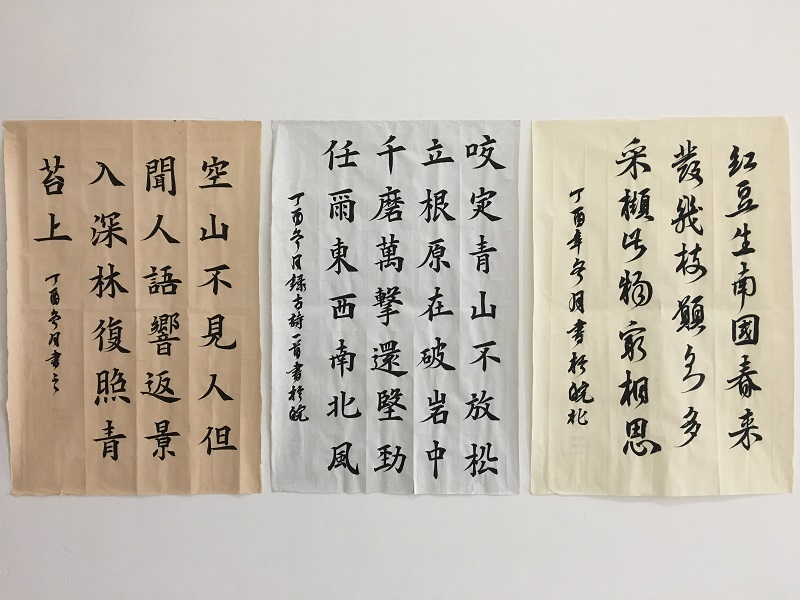 空山不見人但
聞人語響返景
入深林復照青
苔上
丁酉冬月書之
咬定青山不放松
立根原在破岩中
千磨萬擊還堅勁
任爾東西南北風
丁酉冬月録古詩一首書於皖
红豆生南國春来
發幾枝願君多
采擷此物最相思
丁酉年冬月書於皖北